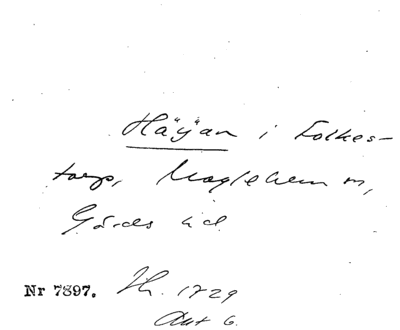 Häÿan i Folkes-
torp, Maglehem sn,
Gärds hd
Nr 7897. Jh. 1729
Akt 6.